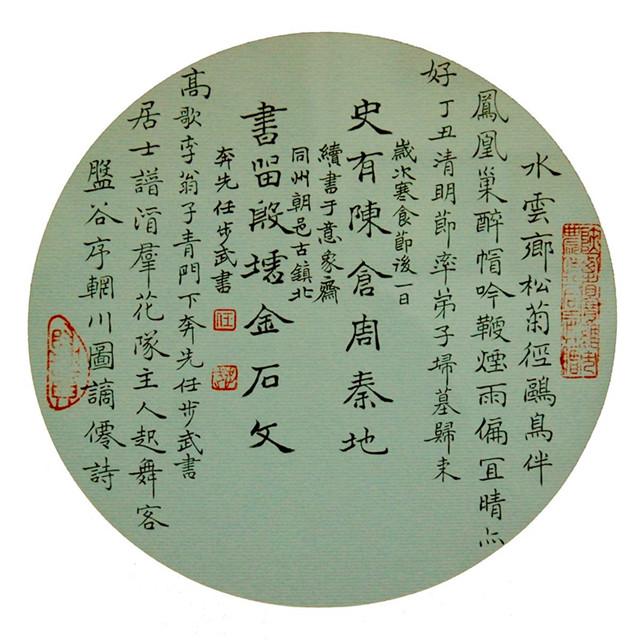 水雲鄉松菊徑鷗鳥伴
鳳凰巢醉帽吟鞭煙雨偏宜晴亦
好丁丑清明節率弟子埽墓歸来
歲次寒食節後一日
史有陳倉周秦地
續書于意象齋
同州朝邑古鎮北
書留殷墟金石文
奔先任步武書
任
高歌李翁子青門下奔先任步武書
居士譜羣花隊主人起舞客
盤谷序輞川圖謫僊詩